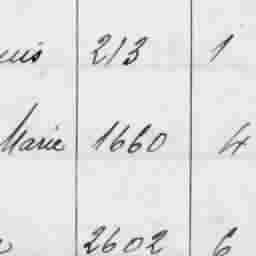 213 1
Marie 1660 4
2602 6